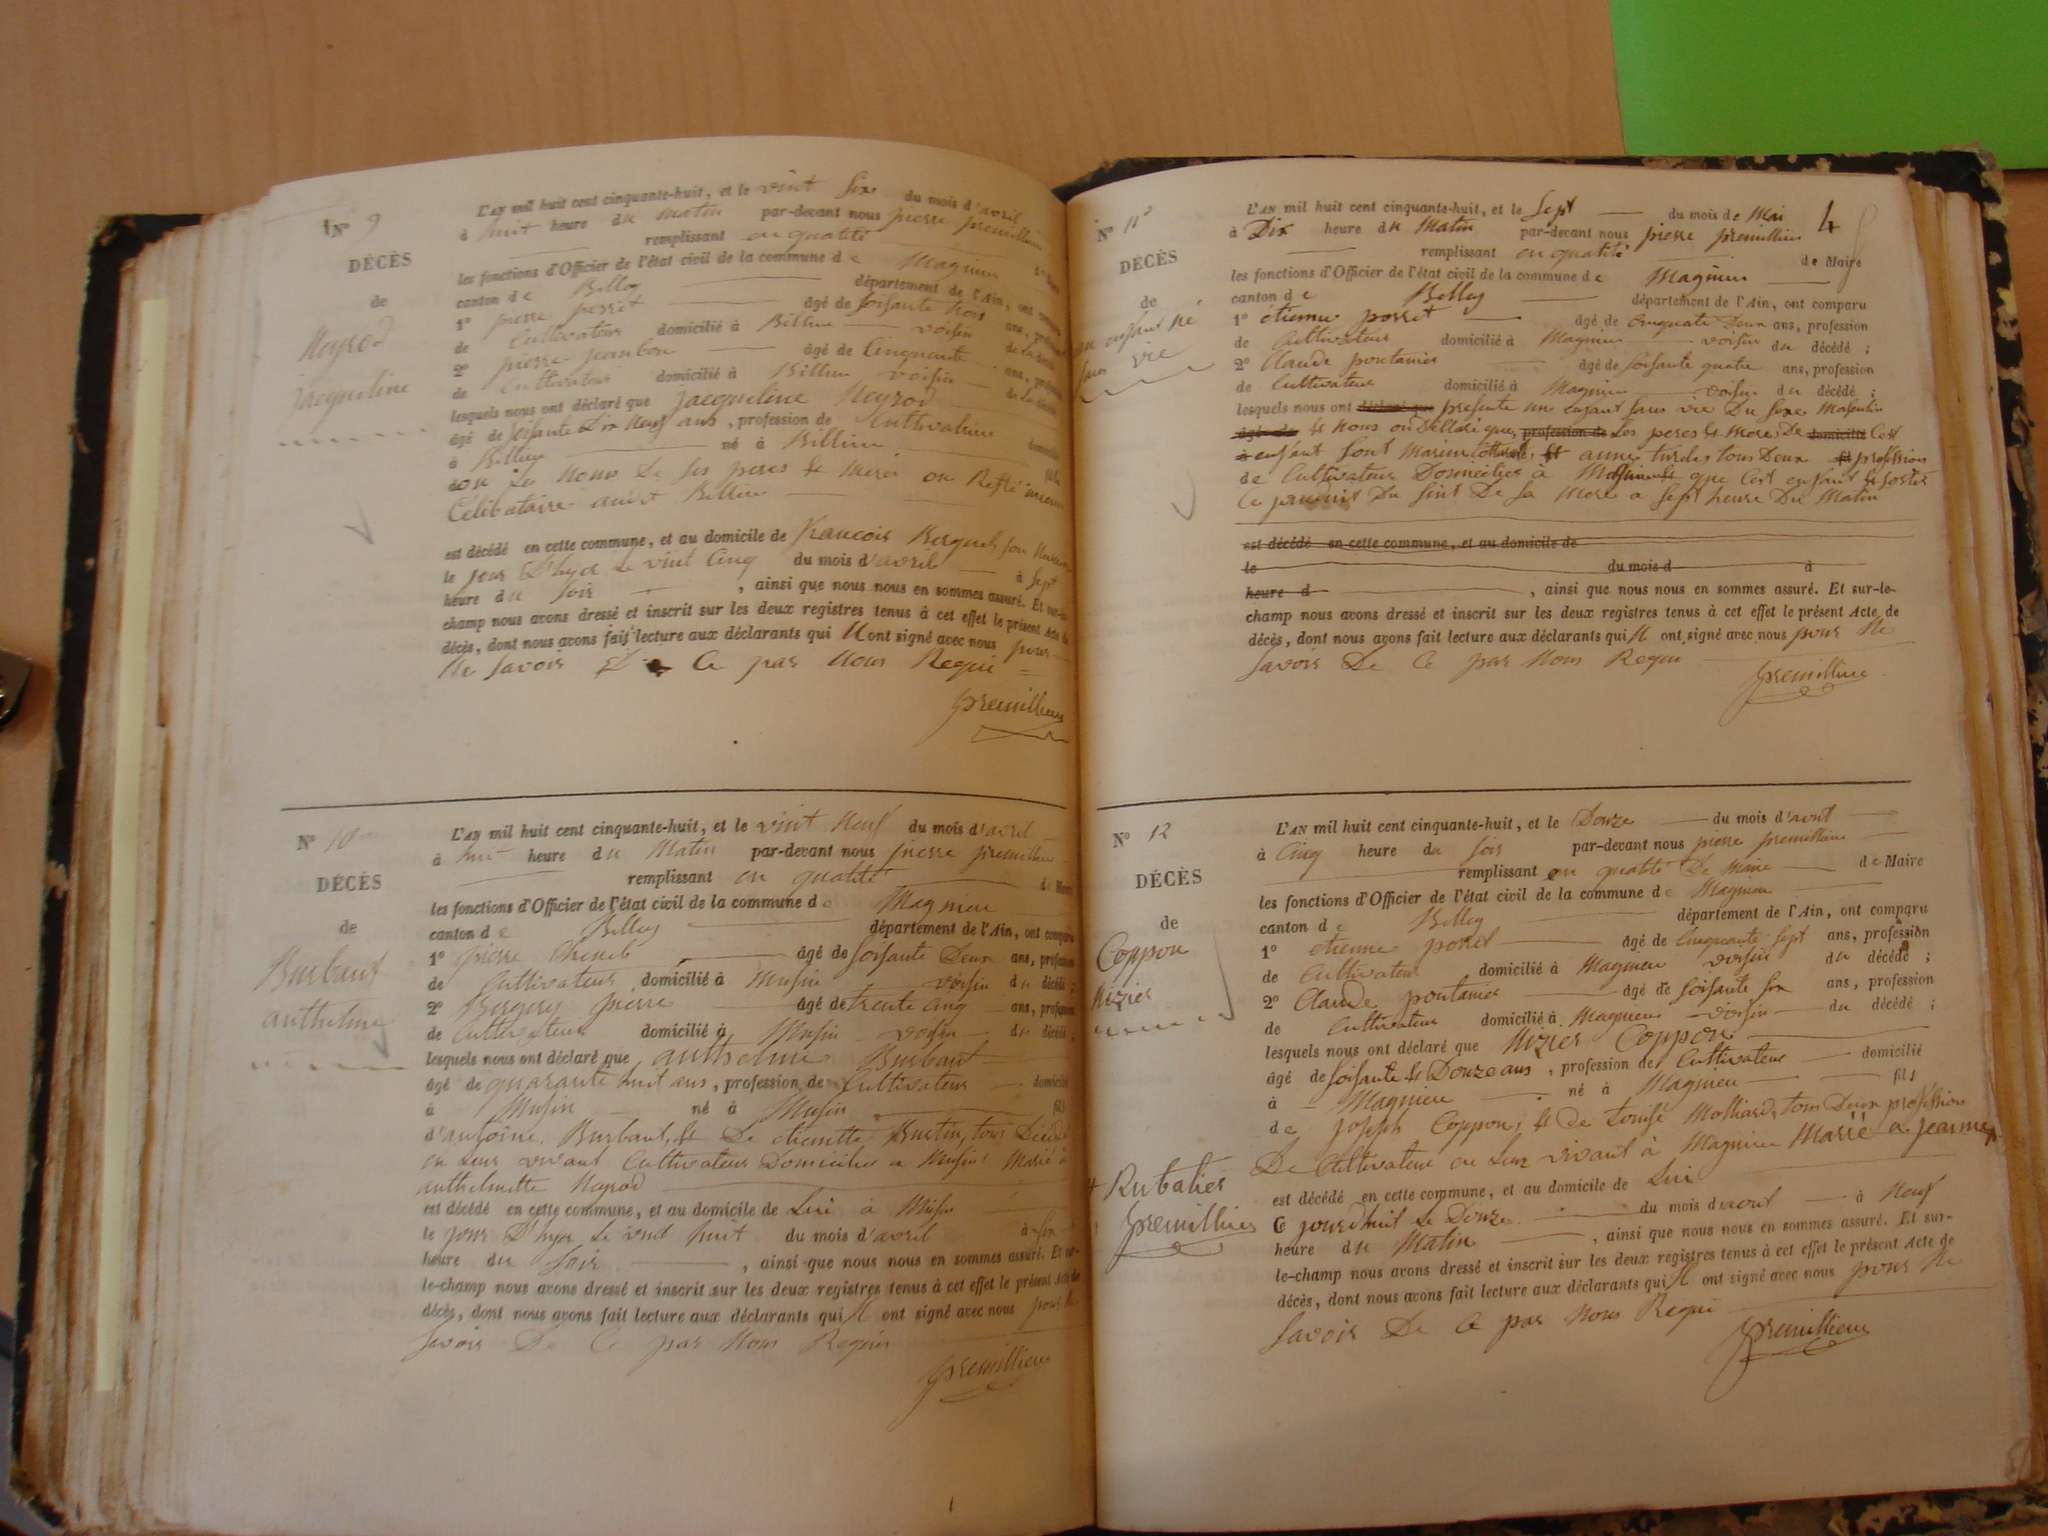 N° 9
DÉCÈS
de
Neyrod
jacqueline
L'AN mil huit cent cinquante-huit, et le vint six du mois d'avril
à huit heure du matin par-devant nous pierre premillieu
remplissant en qualité
les fonctions d'Officier de l'état civil de la commune de Magnieu
canton de Belley département de l'Ain, ont comparu
1° pierre perret âgé de soisante trois ans, profession
de Cultivateur domicilié à Billieu voisin de la
2° pierre jeanbon âgé de Cinquante ans, profession
de Cultivateur domicilié à Billieu voisin de la
lesquels nous ont déclaré que jacqueline Neyrod
âgé de soisante Dix Neuf ans, profession de Cultivatrice domicilié
à Billieu né à Billieu
don Les Noms De Ses peres & mere on Resté
Celibataire Billieu
est décédé en cette commune, et au domicile de francois
le jour D'hyer Le vint Cinq du mois d'avril à Sept
heure du Soir, ainsi que nous nous en sommes assuré. Et sur-le-
champ nous avons dressé et inscrit sur les deux registres tenus à cet effet le présent Acte de
décès, dont nous avons fait lecture aux déclarants qui N ont signé avec nous pour
Ne Savoir De Ce par Nous Requi
premillieu
N° 10
DÉCÈS
de
Burbant
anthelme
L'AN mil huit cent cinquante-huit, et le vint Neuf du mois d'avril
à huit heure du Matin par-devant nous pierre premillieu
remplissant en qualité de Maire
les fonctions d'Officier de l'état civil de la commune de Magnieu
canton de Belley département de l'Ain, ont comparu
1° pierre âgé de soisante Deux ans, profession
de Cultivateur domicilié à Musin voisin du décédé ;
2° pierre âgé de trente Cinq ans, profession
de Cultivateur domicilié à Musin voisin du décédé ;
lesquels nous ont déclaré que anthelme Burbant
âgé de quarante huit ans, profession de Cultivateur domicilié
à Musin né à Musin fils
d'antoine Burbant, & De etiennette tous
en Leur vivant Cultivateur Domicilies a Musin Marié à
anthelmette Neyrod
est décédé en cette commune, et au domicile de Lui à Musin
le jour D'hyer Le vint huit du mois d'avril à six
heure du Soir, ainsi que nous nous en sommes assuré. Et sur-
le-champ nous avons dressé et inscrit sur les deux registres tenus à cet effet le présent Acte de
décès, dont nous avons fait lecture aux déclarants qui N ont signé avec nous pour Ne
Savoir De Ce par Nous Requi
premillieu
N° 11
DÉCÈS
de
un enfant Né
sans vie
4
L'AN mil huit cent cinquante-huit, et le Sept du mois de Mai
à Dix heure du Matin par-devant nous pierre premillieu
remplissant en qualité de Maire
les fonctions d'Officier de l'état civil de la commune de Magnieu
canton de Belley département de l'Ain, ont comparu
1° étienne porret âgé de Cinquate Deux ans, profession
de Cultivateur domicilié à Magnieu voisin du décédé ;
2° Claude pontanier âgé de soisante quatre ans, profession
de Cultivateur domicilié à Magnieu voisin du décédé ;
lesquels nous ont déclaré que presente un enfant sans vie Du sexe Masculin
âgé de & Nous on Déllaré que profession de Les peres & Mere, De domicilié Cest
à enfant sont Marin & annee tous Deux profession
de Cultivateur Domicilies à Magnieu & que Cest enfant & sortis
Ce Du sint De sa Mere a sept heure Du Matin
est décédé en cette commune, et au domicile de
le du mois d à
heure d , ainsi que nous nous en sommes assuré. Et sur-le-
champ nous avons dressé et inscrit sur les deux registres tenus à cet effet le présent Acte de
décès, dont nous avons fait lecture aux déclarants qui N ont signé avec nous pour Ne
Savoir De Ce par Nous Requi
premillieu
N° 12
DÉCÈS
de
Coppon
Nizier
L'AN mil huit cent cinquante-huit, et le Douze du mois d'avout
à Cinq heure du Soir par-devant nous pierre premillieu
remplissant en qualité De Maire de Maire
les fonctions d'Officier de l'état civil de la commune de Magnieu
canton de Belley département de l'Ain, ont comparu
1° étienne porret âgé de Cinquante Sept ans, profession
de Cultivateur domicilié à Magnieu voisin du décédé ;
2° Claude pontanier âgé de soisante six ans, profession
de Cultivateur domicilié à Magnieu voisin du décédé ;
lesquels nous ont déclaré que Nizier Coppon
âgé de soisante & Douze ans, profession de Cultivateur domicilié
à Magnieu né à Magnieu fils
de joseph Coppon, & de Louise Molliard, tous Deux profession
De Cultivateur en Leur vivant à Magnieu Marié a jeanne +
+ Rubatier
premillieu
est décédé en cette commune, et au domicile de Lui
Ce jourdhuit Le Douze du mois d'avout à Neuf
heure du Matin, ainsi que nous nous en sommes assuré. Et sur-
le-champ nous avons dressé et inscrit sur les deux registres tenus à cet effet le présent Acte de
décès, dont nous avons fait lecture aux déclarants qui N ont signé avec nous pour Ne
Savoir De Ce par Nous Requi
premillieu